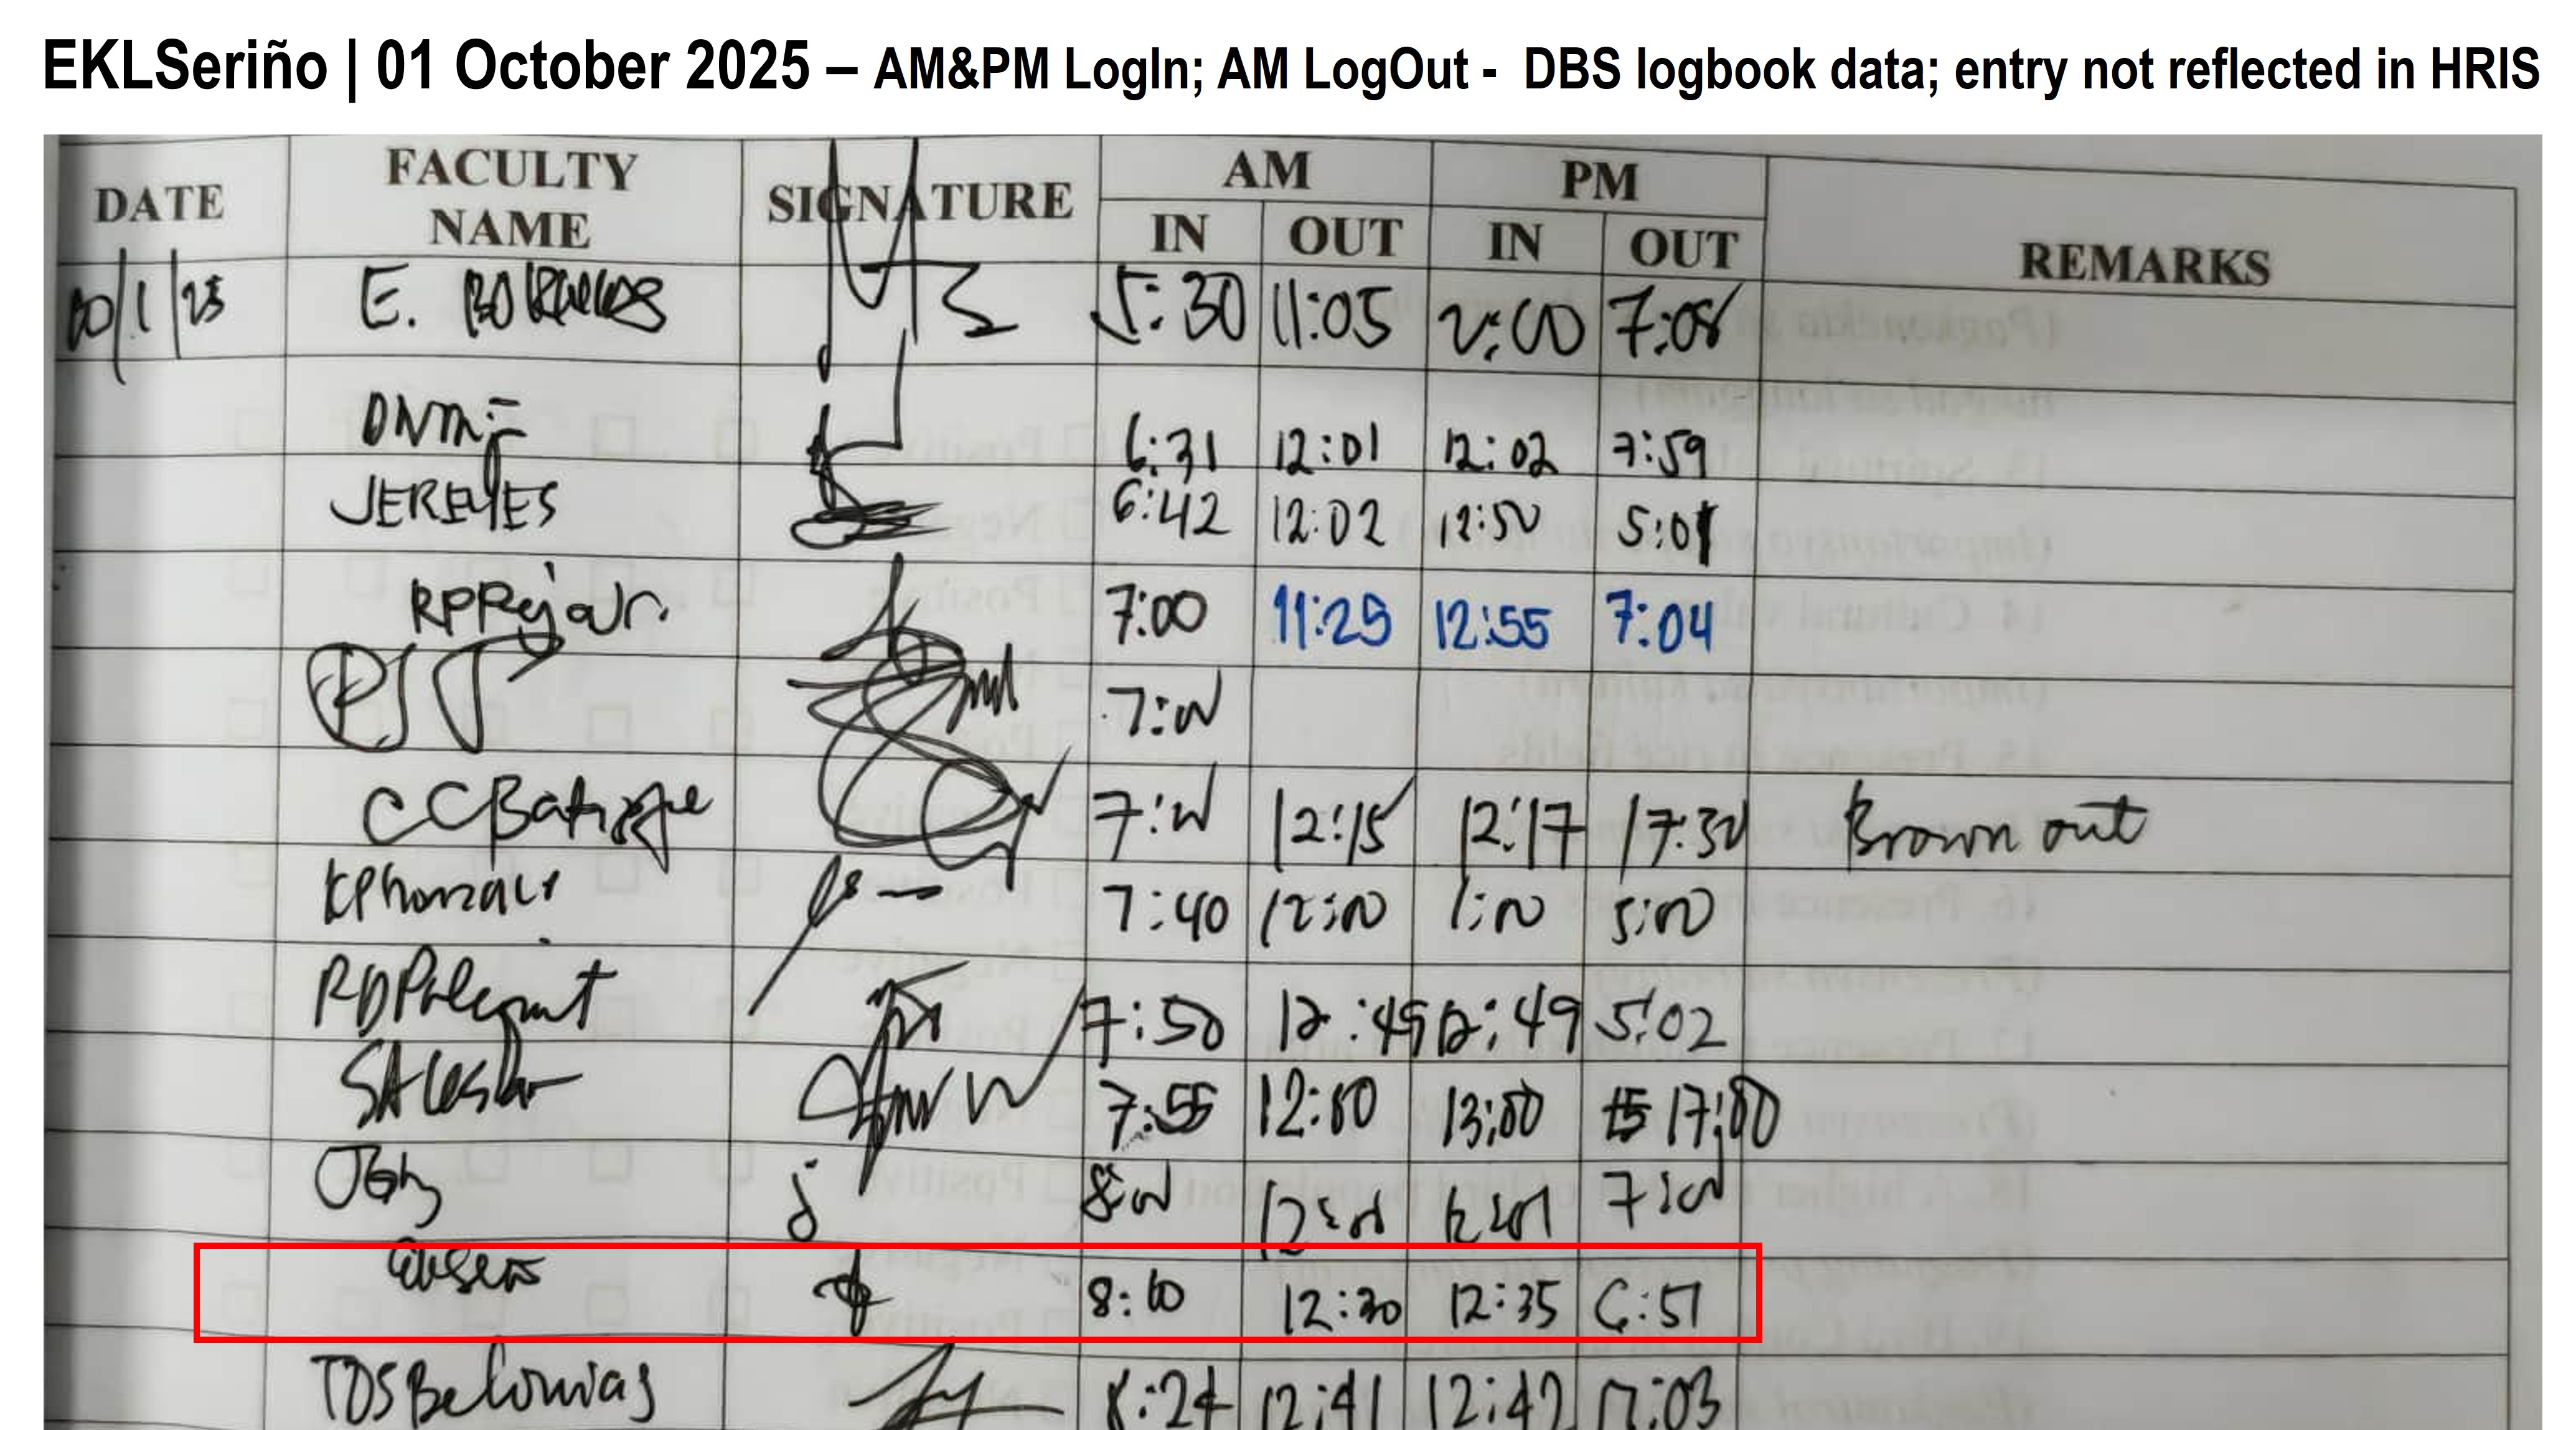 EKLSeriño | 01 October 2025 – AM&PM LogIn; AM LogOut - DBS logbook data; entry not reflected in HRIS
DATE FACULTY NAME SIGNATURE AM PM REMARKS
IN OUT IN OUT
10/1/25 E. 5:30 11:05 2:00 7:08
DNM 6:31 12:01 12:02 7:59
JEREYES 6:42 12:02 12:50 5:01
7:00 11:25 12:55 7:04
7:00
CCBatingue 7:00 12:15 12:17 17:30 Brown out
7:40 12:00 1:00 5:00
7:50 12:49 12:49 5:02
7:55 12:00 13:00 17:00
8:00 12:01 7:00
8:10 12:30 12:35 6:51
TDSBelonias 8:24 12:41 12:42 17:03